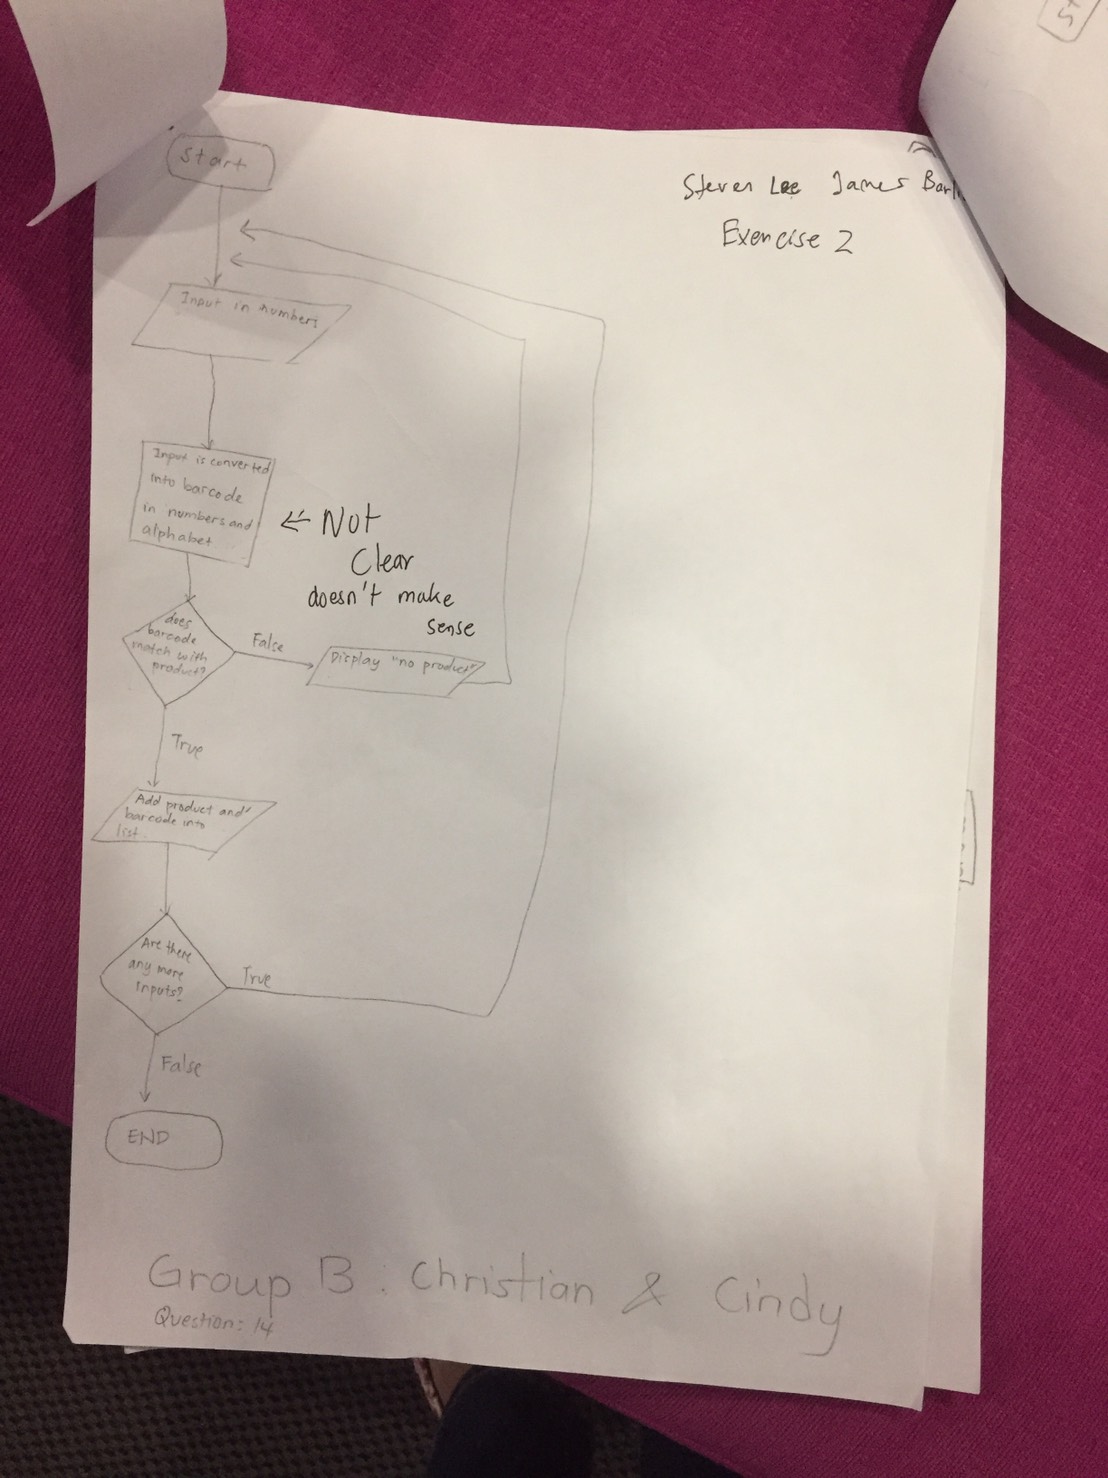 Start
Steven Lee James
Exercise 2
Input in numbers
Input is converted
into barcode
in numbers and
alphabet
← Not
Clear
doesn't make
sense
does
barcode
match with
product?
False
Display "no product"
True
Add product and
barcode into
list.
Are there
any more
inputs?
True
False
END
Group B. Christian & Cindy
Question: 14